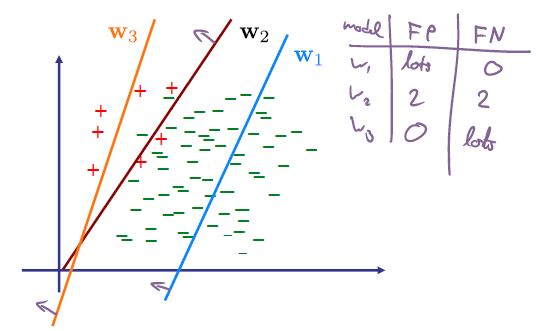 w3
w2
w1
model FP FN
w1 lots 0
w2 2 2
w3 0 lots